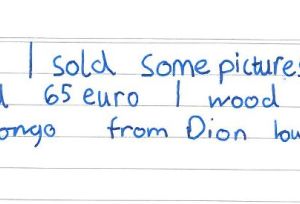 I sold some pictures
65 euro I wood
ongo from Dion